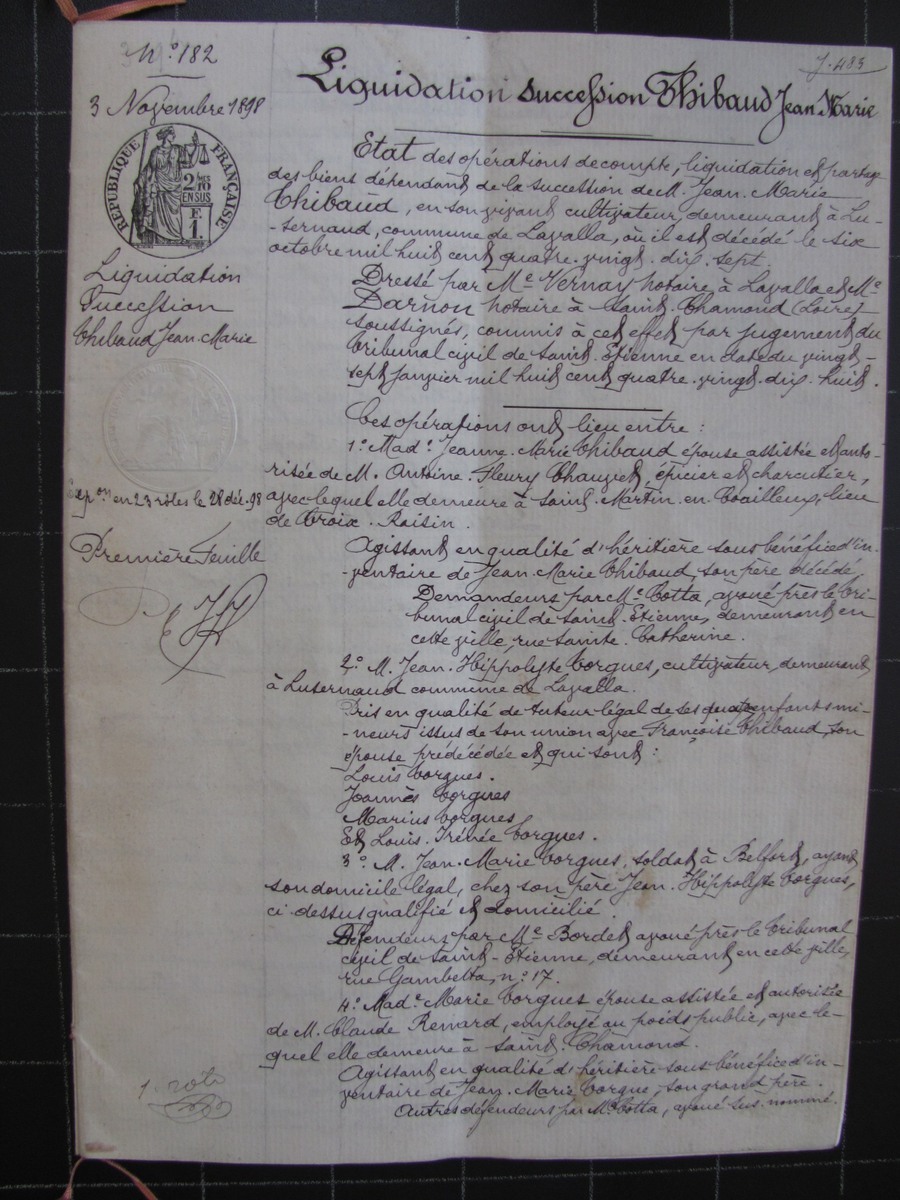 N° 182
J. 483
3 Novembre 1898
Liquidation succession Thibaud Jean Marie
RÉPUBLIQUE FRANÇAISE
2/10 EN SUS
F. 1.
Liquidation
Succession
Thibaud Jean-Marie
Exp.on en 23 rôles le 28 déc. 98
Première Feuille
Etat des opérations de compte, liquidation et partage
des biens dépendant de la succession de M. Jean-Marie
Thibaud, en son vivant cultivateur, demeurant à Lu-
-sernaud, commune de Lavalla, où il est décédé le six
octobre mil huit cent quatre-vingt-dix-sept.
Dressé par Me Vernay notaire à Lavalla et Me
Darnon notaire à Saint-Chamond (Loire)
soussignés, commis à cet effet par jugement du
tribunal civil de Saint-Etienne en date du vingt-
sept janvier mil huit cent quatre-vingt-dix-huit.
Ces opérations ont lieu entre :
1° Made Jeanne-Marie Thibaud épouse assistée et auto-
risée de M. Antoine-Fleury Chauvet, épicier et charcutier,
avec lequel elle demeure à Saint-Martin-en-Coailleux, lieu
de Croix-Raisin.
Agissant en qualité d'héritière sous bénéfice d'in-
-ventaire de Jean-Marie Thibaud, son père décédé,
Demandeurs par Me Cotta, avoué près le tri-
bunal civil de Saint-Etienne, demeurant en
cette ville, rue Sainte-Catherine.
2° M. Jean-Hippolyte Corgues, cultivateur, demeurant
à Lusernaud commune de Lavalla.
Pris en qualité de tuteur légal de ses quatre enfants mi-
-neurs issus de son union avec Françoise Thibaud, son
épouse prédécédée et qui sont :
Louis Corgues.
Joannès Corgues
Marius Corgues
Et Louis-Irénée Corgues.
3° M. Jean-Marie Corgues, soldat à Belfort, ayant
son domicile légal, chez son père Jean-Hippolyte Corgues,
ci-dessus qualifié et domicilié.
Défendeurs par Me Bordet avoué près le tribunal
civil de Saint-Etienne, demeurant en cette ville,
rue Gambetta, n° 17.
4° Made Marie Corgues épouse assistée et autorisée
de M. Claude Renard, employé au poids public, avec le-
quel elle demeure à Saint-Chamond.
Agissant en qualité d'héritière sous bénéfice d'in-
ventaire de Jean-Marie Corgue, son grand père.
Autres défendeurs par Me Cotta, avoué sus-nommé.
1. rôle